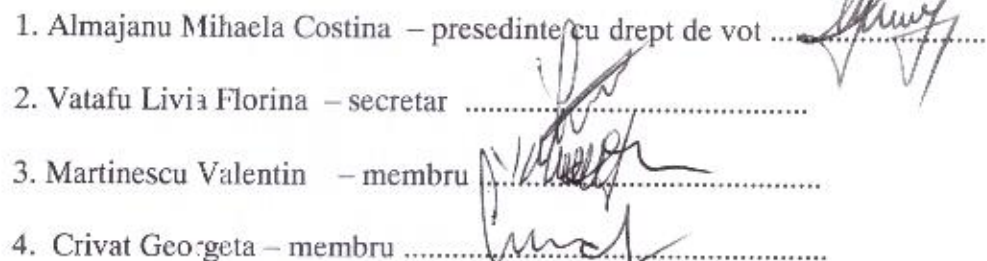 1. Almajanu Mihaela Costina – presedinte cu drept de vot ........................
2. Vatafu Livia Florina – secretar ........................
3. Martinescu Valentin – membru ........................
4. Crivat Georgeta – membru ........................